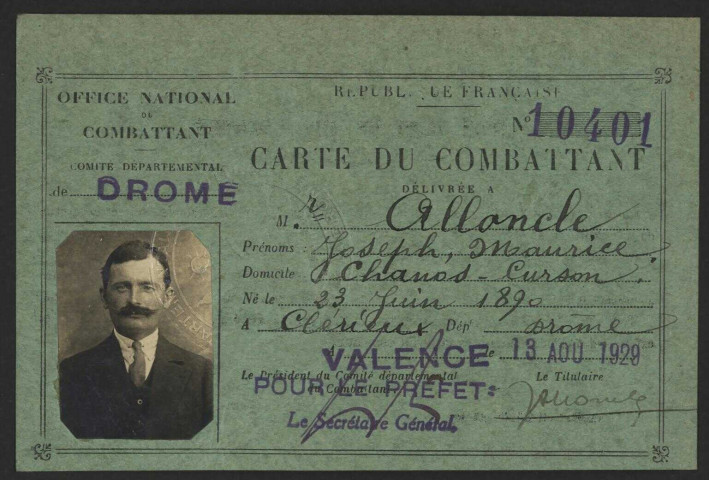 OFFICE NATIONAL
DU
COMBATTANT
COMITÉ DÉPARTEMENTAL
de DROME
RÉPUBLIQUE FRANÇAISE
N° 10401
CARTE DU COMBATTANT
DÉLIVRÉE A
M. Alloncle
Prénoms : Joseph, Maurice.
Domicile Chanos-Curson.
Né le 23 Juin 1890
A Clérieux Dépt Drome
A VALENCE le 13 AOU 1929
Le Président du Comité départemental
du Combattant
Le Titulaire
POUR LE PRÉFET:
Le Secrétaire Général,